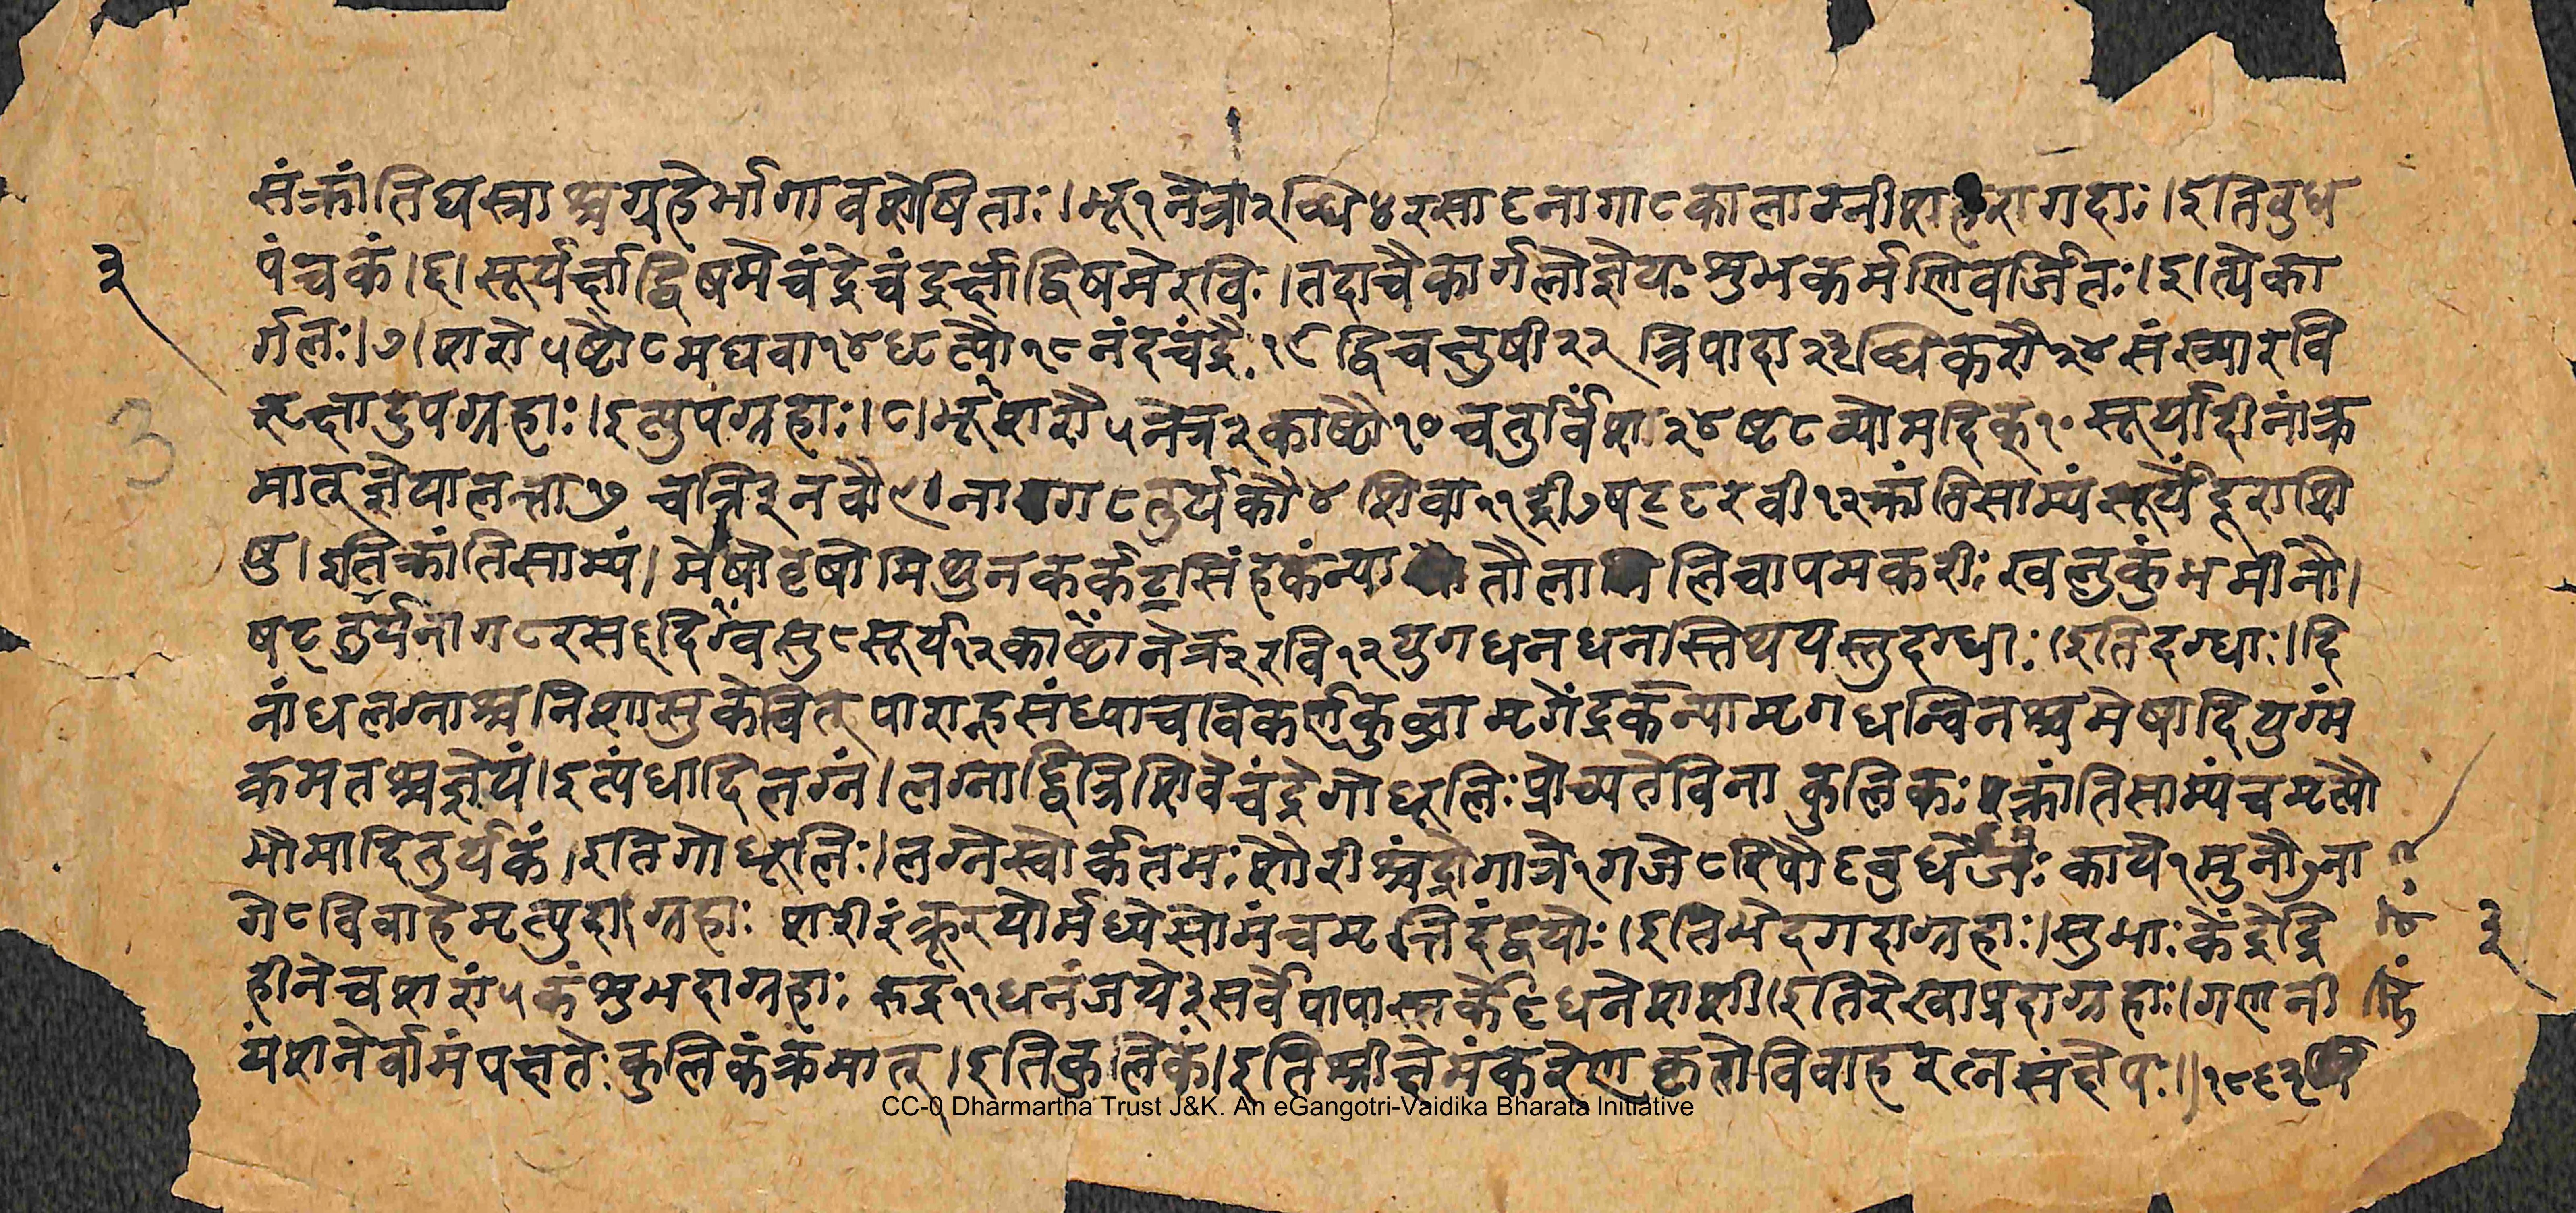 संक्रांतिघस्त्राश्चग्रहैर्भागावशेषिताः।भू१नेत्रा२ब्धि४रसा६नागा८कालाग्नी रागदाः।इतिबुध
पंचकं।६।सूर्यर्क्षाद्विषमेचंद्रेचंद्रर्क्षाद्विषमेरविः।तदाचैकार्गलोज्ञेयःशुभकर्मणिवर्जितः।इत्येका
र्गलः।७।शरो५ष्टो८मघवा१४धृत्यौ१८नंदचंद्रैः१९द्विचक्षुषी२२ त्रिपादा२३ब्धिकरौ२४संख्यारवि
ऋक्षादुपग्रहाः।इत्युपग्रहाः।८।भू१शरौ५नेत्र२काष्ठौ१०चतुर्विंश२४ष्ट८व्योमदिक्१०सूर्यादीनांक्र
मात्ज्ञेयालत्ता७ चत्रि३नवौ९।नाग८तुर्यकौ४शिवा११द्री७षट्६रवी१२क्रांतिसाम्यंसूर्येंदूराशि
षु।इतिक्रांतिसाम्यं।मेषोवृषोमिथुनकर्कटसिंहकंन्या तौला लिचापमकरीःखलुकुंभमीनौ।
षट् तुर्यनाग८रस६दिग्वसु८सूर्य१२काष्ठानेत्र२रवि१२युगधनधनास्तिथयस्तुदग्धाः।इतिदग्धाः।दि
नांधलग्नाश्चनिशासुकेचित् पाराह्नसंध्याचविकर्णकुब्जामृगेंद्रकन्यामृगधन्विनश्चमेषादियुग्मं
क्रमतश्चज्ञेयं।इत्यंधादिलग्नं।लग्नाद्वित्रिशिवेचंद्रेगोधूलिःप्रोच्यतेविना कुलिकःक्रांतिसाम्यंचमृत्यौ
भौमादितुर्यकं।इतिगोधूलिः।लग्नेस्वोर्कतमःशौरीश्चंद्रोगात्रे१गजे८रिपौ६बुधेज्यः काये१मुनौ७ना
गे८विवाहेमृत्युदाग्रहाः शरीरंक्रूरयोर्मध्येसोमंचमृत्तिदंद्वयोः।इतिभेदगदाग्रहाः।सुभाःकेंद्रेद्रि
हीनेचशरां५कंशुभदाग्रहाः रुद्र११धनंजये३सर्वेपापास्तर्के६धनेशशी।इतिरेखाप्रदाग्रहाः।गणनी
यंशनेर्वामंपत्ततेःकुलिकंक्रमात्।इतिकुलिकं।इतिश्रीक्षेमंकरेणकृतोविवाहरत्नसंक्षेपः॥१८६३
३
3
३
CC-0 Dharmartha Trust J&K. An eGangotri-Vaidika Bharata Initiative